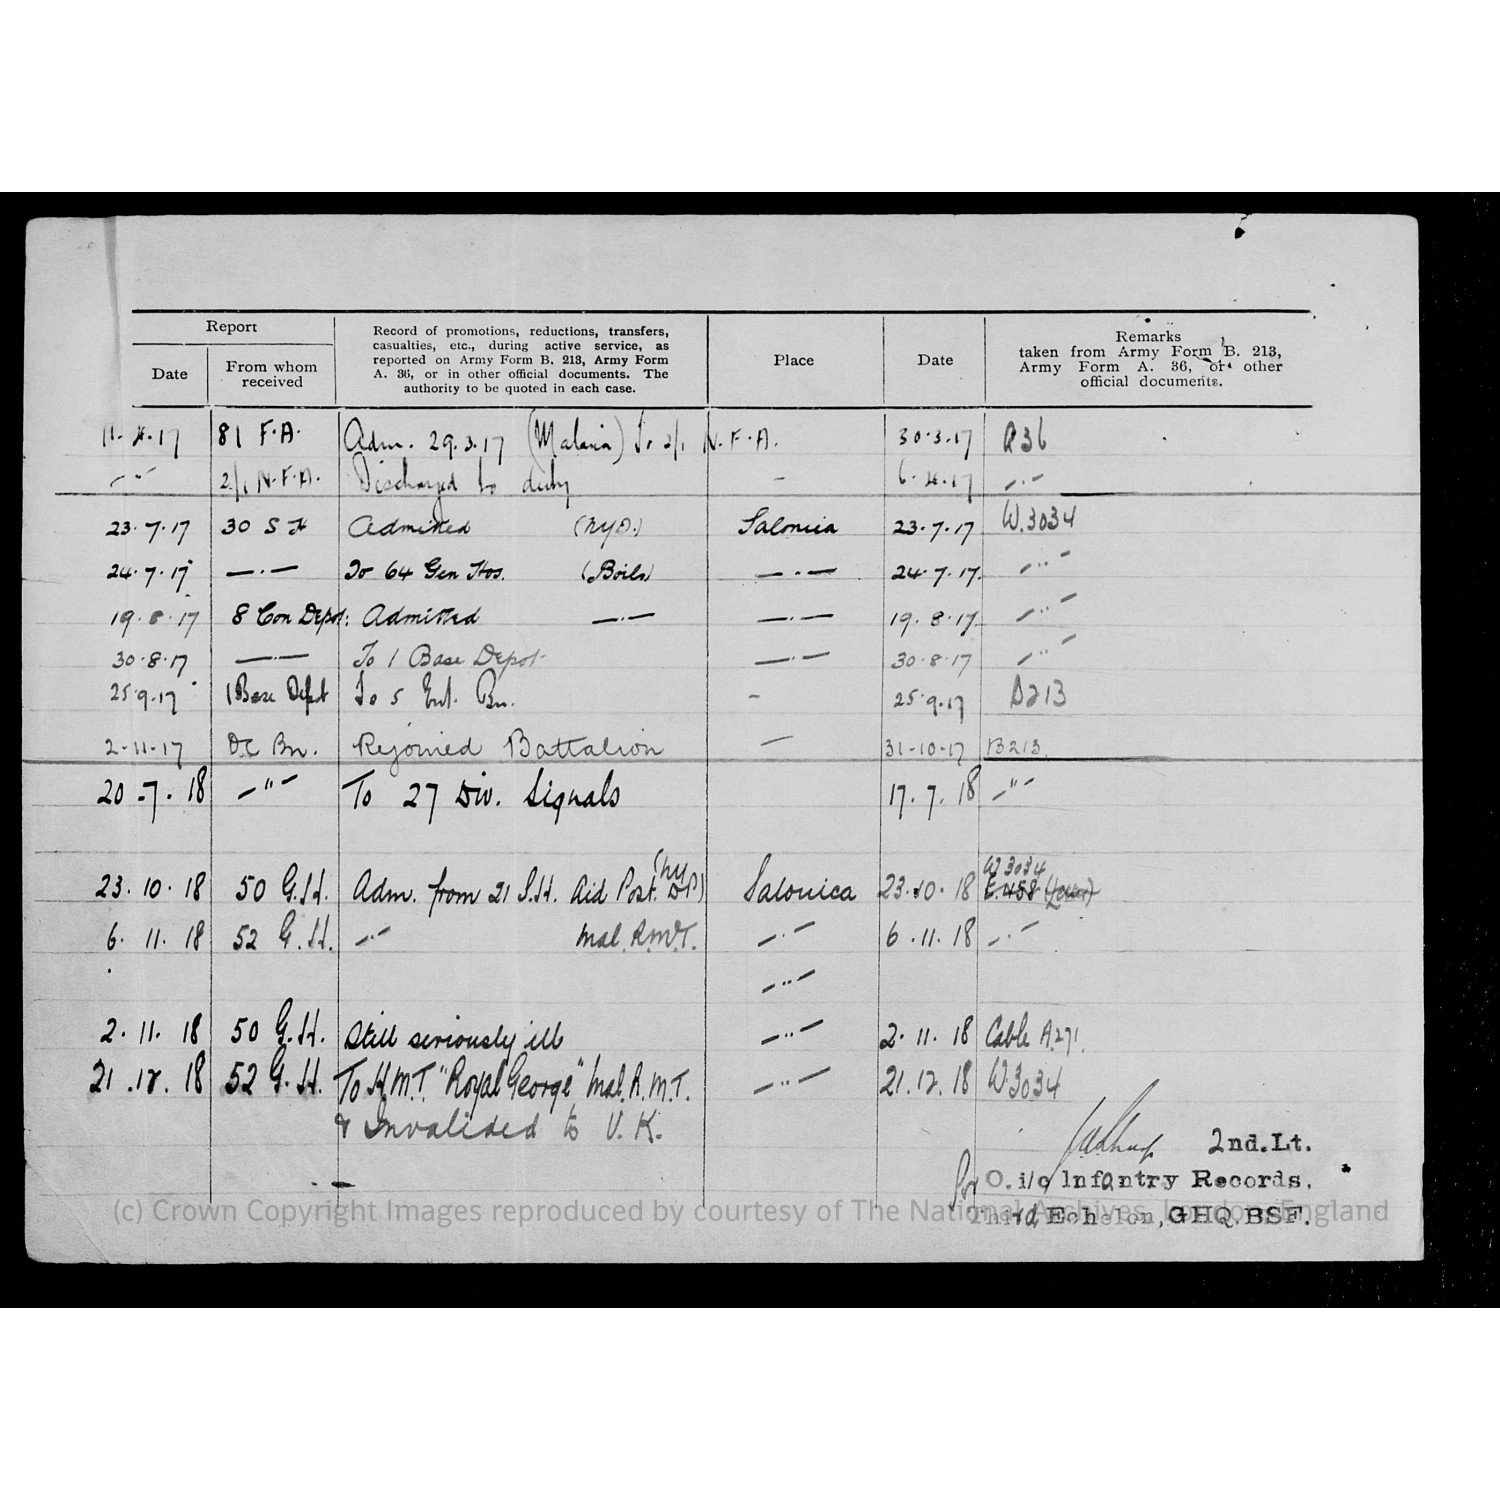 Report
Record of promotions, reductions, transfers,
casualties, etc., during active service, as
reported on Army Form B. 213, Army Form
A. 36, or in other official documents. The
authority to be quoted in each case.
Place
Date
Remarks
taken from Army Form B. 213,
Army Form A. 36, or other
official documents.
Date
From whom
received
11.4.17 81 F.A. Adm. 29.3.17 (Malaria) To 2/1 N.F.A. 30.3.17 A36
–"– 2/1 N.F.A. Discharged to duty – 6.4.17 –"–
23.7.17 30 S H Admitted (NYD.) Salonica 23.7.17 W.3034
24.7.17 –.– To 64 Gen Hos. (Boils) –.– 24.7.17. –"–
19.8.17 8 Con Depot: Admitted –.– –.– 19.8.17 –"–
30.8.17 –.– To 1 Base Depot –.– 30.8.17 –"–
25.9.17 1 Base Depot To 5 Ent. Bn. – 25.9.17 B213
2-11-17 OC Bn. Rejoined Battalion – 31-10-17 B213.
20.7.18 –"– To 27 Div. Signals 17.7.18 –"–
23.10.18 50 G.H. Adm. from 21 S.H. Aid Post. (NYD) Salonica 23.10.18 W3034 E.458
6.11.18 52 G.H. –"– Mal. –"– 6.11.18 –"–
–"–
2.11.18 50 G.H. Still seriously ill –"– 2.11.18 Cable A.271.
21.12.18 52 G.H. To H.M.T. "Royal George" Mal. –"– 21.12.18 W3034
& Invalided to U.K.
2nd.Lt.
for O.i/c Infantry Records,
Third Echelon, GHQ. BSF.
(c) Crown Copyright Images reproduced by courtesy of The National Archives, London, England